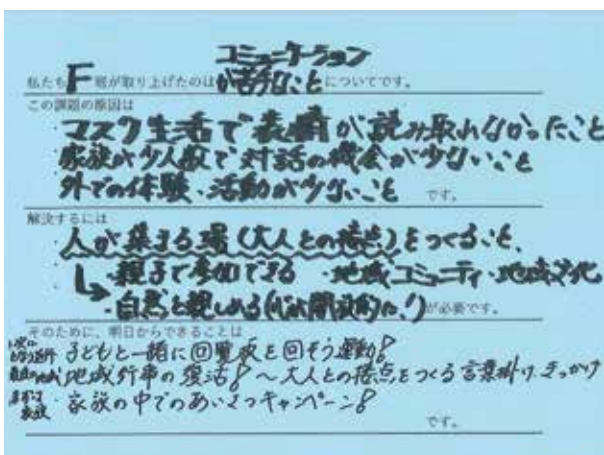 コミュニケーション
私たちF班が取り上げたのはが苦手なことについてです。
この課題の原因は
・マスク生活で表情が読み取れなかったこと
家族が少人数で対話の機会が少ないこと
外での体験・活動が少ないこと です。
解決するには
・人が集まる場(大人との接点)をつくること、
・親子で参加できる ・地域コミュニティ・地域文化
・自然と親しめる(心が開放的に!)が必要です。
そのために、明日からできることは
子どもと一緒に回覧板を回そう運動!
地域行事の復活!~大人との接点をつくる言葉掛け、きっかけ
まずは家族 ・家族の中でのあいさつキャンペーン!
です。